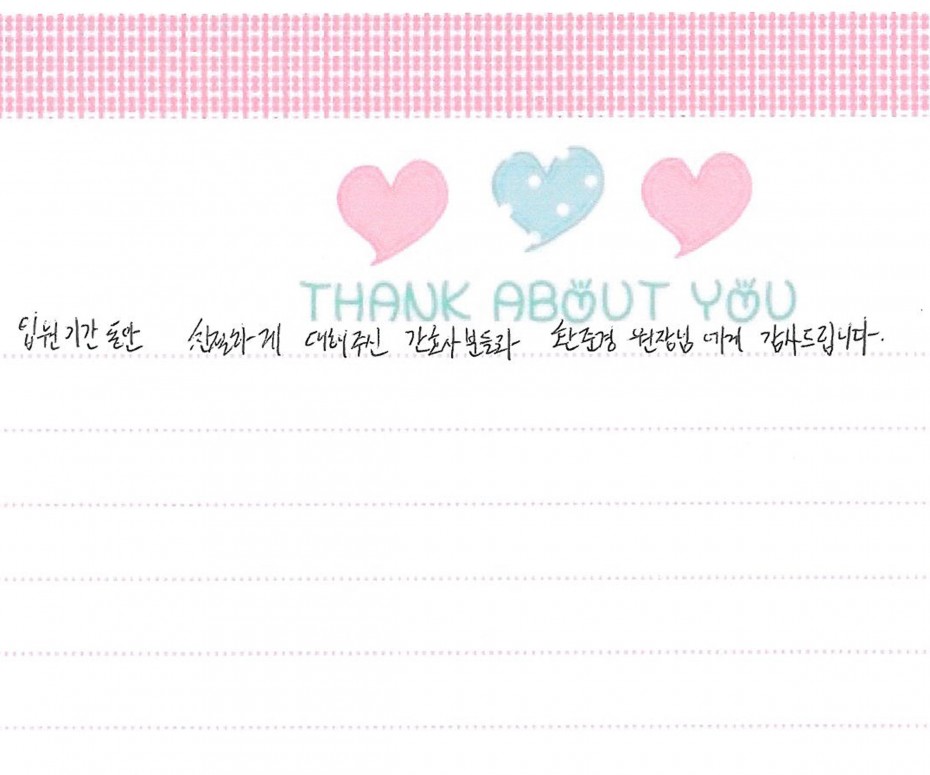 THANK ABOUT YOU
입원기간 동안 친절하게 대해주신 간호사분들과 한준경 원장님에게 감사드립니다.